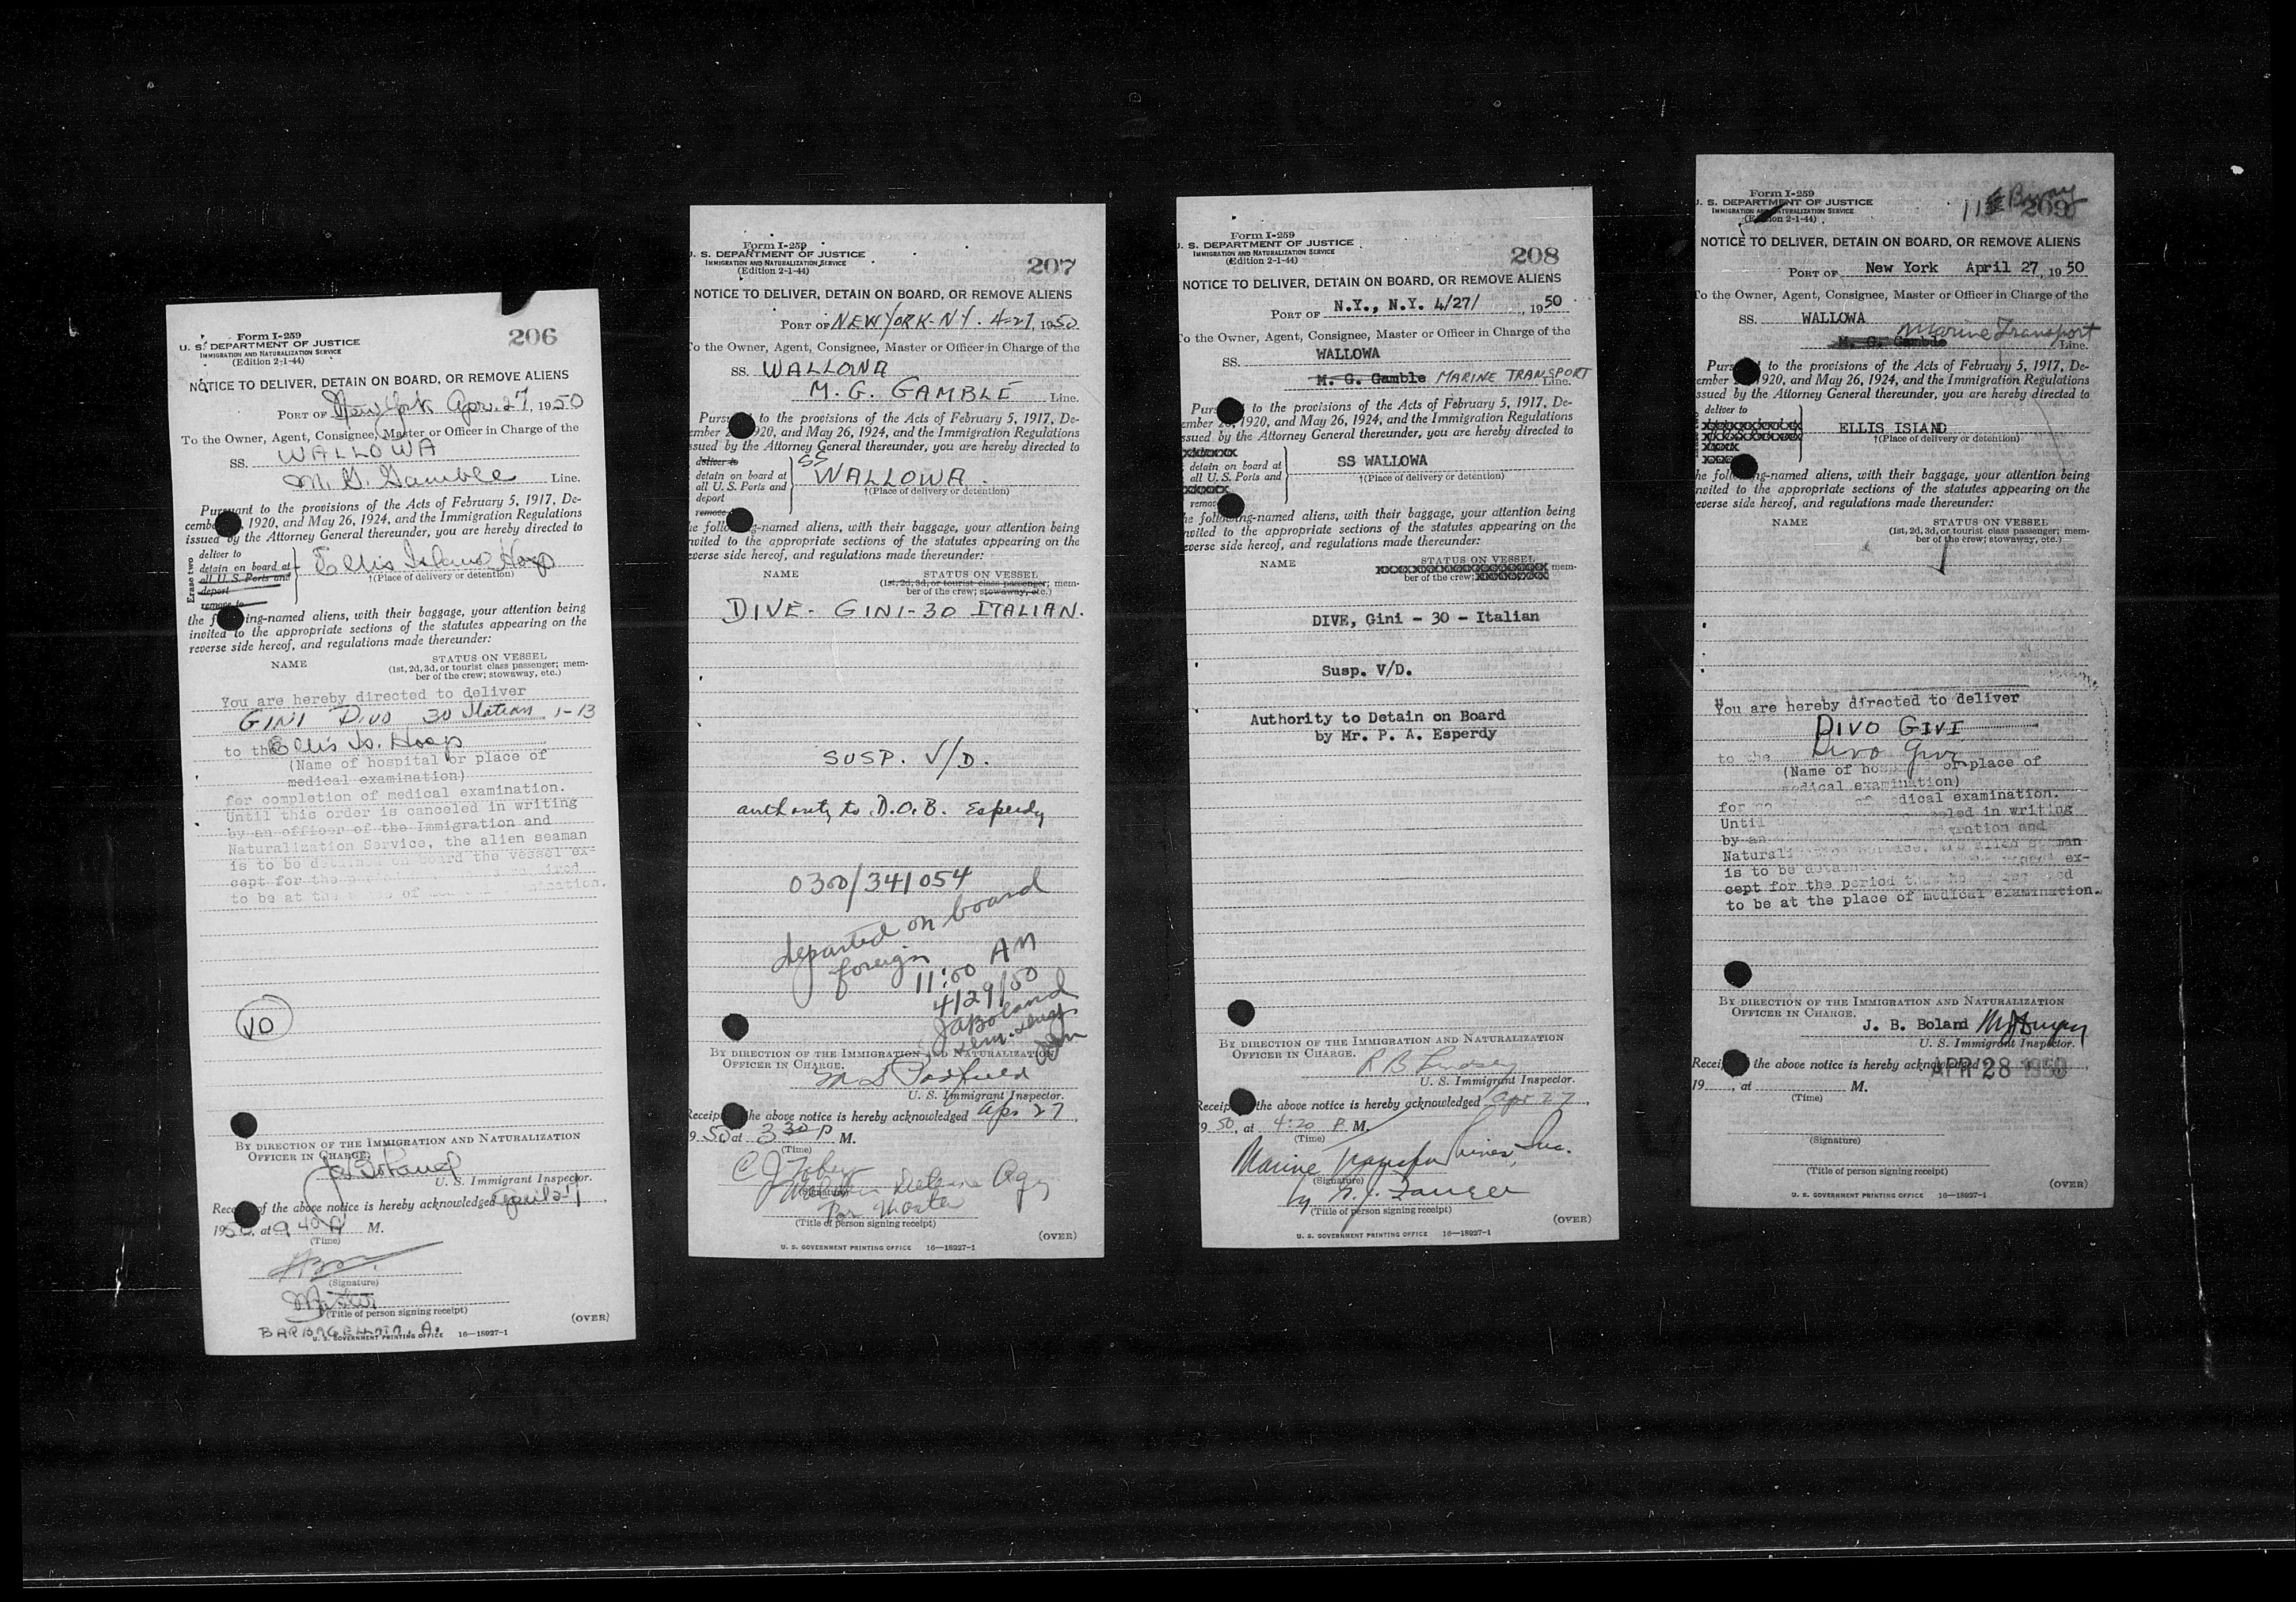 Form I-259
U. S. DEPARTMENT OF JUSTICE
IMMIGRATION AND NATURALIZATION SERVICE
(Edition 2-1-44)
206
NOTICE TO DELIVER, DETAIN ON BOARD, OR REMOVE ALIENS
PORT OF New York Apr. 27, 1950
To the Owner, Agent, Consignee, Master or Officer in Charge of the
SS. WALLOWA
M. G. Gamble Line.
Pursuant to the provisions of the Acts of February 5, 1917, De-
cember , 1920, and May 26, 1924, and the Immigration Regulations
issued by the Attorney General thereunder, you are hereby directed to
Erase two
deliver to
detain on board at
all U. S. Ports and
deport
remove to
Ellis Island Hosp
†(Place of delivery or detention)
the following-named aliens, with their baggage, your attention being
invited to the appropriate sections of the statutes appearing on the
reverse side hereof, and regulations made thereunder:
NAME STATUS ON VESSEL
(1st, 2d, 3d, or tourist class passenger; mem-
ber of the crew; stowaway, etc.)
You are hereby directed to deliver
GINI DIVO 30 Italian 1-13
to the Ellis Is. Hosp
(Name of hospital or place of
medical examination)
for completion of medical examination.
Until this order is canceled in writing
by an officer of the Immigration and
Naturalization Service, the alien seaman
is to be detained on board the vessel ex-
cept for the
to be at the of
VD
BY DIRECTION OF THE IMMIGRATION AND NATURALIZATION
OFFICER IN CHARGE.
J B Boland
U. S. Immigrant Inspector.
Receipt of the above notice is hereby acknowledged April 27,
1950, at 9 40 A M.
(Time)
(Signature)
Master
(Title of person signing receipt)
(OVER)
U. S. GOVERNMENT PRINTING OFFICE 16—18927-1
Form I-259
U. S. DEPARTMENT OF JUSTICE
IMMIGRATION AND NATURALIZATION SERVICE
(Edition 2-1-44)
207
NOTICE TO DELIVER, DETAIN ON BOARD, OR REMOVE ALIENS
PORT OF NEW YORK-NY. 4-27, 1950
To the Owner, Agent, Consignee, Master or Officer in Charge of the
SS. WALLOWA
M. G. GAMBLE Line.
Pursuant to the provisions of the Acts of February 5, 1917, De-
cember 1920, and May 26, 1924, and the Immigration Regulations
issued by the Attorney General thereunder, you are hereby directed to
deliver to
detain on board at
all U. S. Ports and
deport
remove to
SS WALLOWA.
†(Place of delivery or detention)
the following-named aliens, with their baggage, your attention being
invited to the appropriate sections of the statutes appearing on the
reverse side hereof, and regulations made thereunder:
NAME STATUS ON VESSEL
(1st, 2d, 3d, or tourist class passenger; mem-
ber of the crew; stowaway, etc.)
DIVE - GINI - 30 ITALIAN.
SUSP. V/D.
authority to D.O.B. Esperdy
0300/341054
departed on board
foreign
11:00 AM
4/29/50
JABoland
BY DIRECTION OF THE IMMIGRATION AND NATURALIZATION
OFFICER IN CHARGE.
U. S. Immigrant Inspector.
Receipt of the above notice is hereby acknowledged Apr 27,
1950 at 3 30 P M.
(Time)
(Signature)
For Master
(Title of person signing receipt)
(OVER)
U. S. GOVERNMENT PRINTING OFFICE 16—18927-1
Form I-259
U. S. DEPARTMENT OF JUSTICE
IMMIGRATION AND NATURALIZATION SERVICE
(Edition 2-1-44)
208
NOTICE TO DELIVER, DETAIN ON BOARD, OR REMOVE ALIENS
PORT OF N.Y., N.Y. 4/27/, 1950
To the Owner, Agent, Consignee, Master or Officer in Charge of the
SS. WALLOWA
M. G. Gamble MARINE TRANSPORT Line.
Pursuant to the provisions of the Acts of February 5, 1917, De-
cember 20, 1920, and May 26, 1924, and the Immigration Regulations
issued by the Attorney General thereunder, you are hereby directed to
detain on board at
all U. S. Ports and
SS WALLOWA
†(Place of delivery or detention)
the following-named aliens, with their baggage, your attention being
invited to the appropriate sections of the statutes appearing on the
reverse side hereof, and regulations made thereunder:
NAME STATUS ON VESSEL
mem-
ber of the crew;
DIVE, Gini - 30 - Italian
Susp. V/D.
Authority to Detain on Board
by Mr. P. A. Esperdy
BY DIRECTION OF THE IMMIGRATION AND NATURALIZATION
OFFICER IN CHARGE.
U. S. Immigrant Inspector.
Receipt of the above notice is hereby acknowledged Apr 27,
1950, at 4:20 P. M.
(Time)
Marine Transport Lines, Inc.
(Signature)
(Title of person signing receipt)
(OVER)
U. S. GOVERNMENT PRINTING OFFICE 16—18927-1
Form I-259
U. S. DEPARTMENT OF JUSTICE
IMMIGRATION AND NATURALIZATION SERVICE
(Edition 2-1-44)
11 Bway
209
NOTICE TO DELIVER, DETAIN ON BOARD, OR REMOVE ALIENS
PORT OF New York April 27, 1950
To the Owner, Agent, Consignee, Master or Officer in Charge of the
SS. WALLOWA
M. G. Gamble Marine Transport Line.
Pursuant to the provisions of the Acts of February 5, 1917, De-
cember 1920, and May 26, 1924, and the Immigration Regulations
issued by the Attorney General thereunder, you are hereby directed to
deliver to
ELLIS ISLAND
†(Place of delivery or detention)
the following-named aliens, with their baggage, your attention being
invited to the appropriate sections of the statutes appearing on the
reverse side hereof, and regulations made thereunder:
NAME STATUS ON VESSEL
(1st, 2d, 3d, or tourist class passenger; mem-
ber of the crew; stowaway, etc.)
You are hereby directed to deliver
DIVO GIVI
to the Divo Givi
(Name of hospital or place of
medical examination)
for of medical examination.
Until canceled in writing
by an Immigration and
Naturalization Service, the alien seaman
is to be detained vessel ex-
cept for the period
to be at the place of medical examination.
BY DIRECTION OF THE IMMIGRATION AND NATURALIZATION
OFFICER IN CHARGE.
J. B. Boland
U. S. Immigrant Inspector.
Receipt of the above notice is hereby acknowledged APR 28 1950,
19, at M.
(Time)
(Signature)
(Title of person signing receipt)
(OVER)
U. S. GOVERNMENT PRINTING OFFICE 16—18927-1